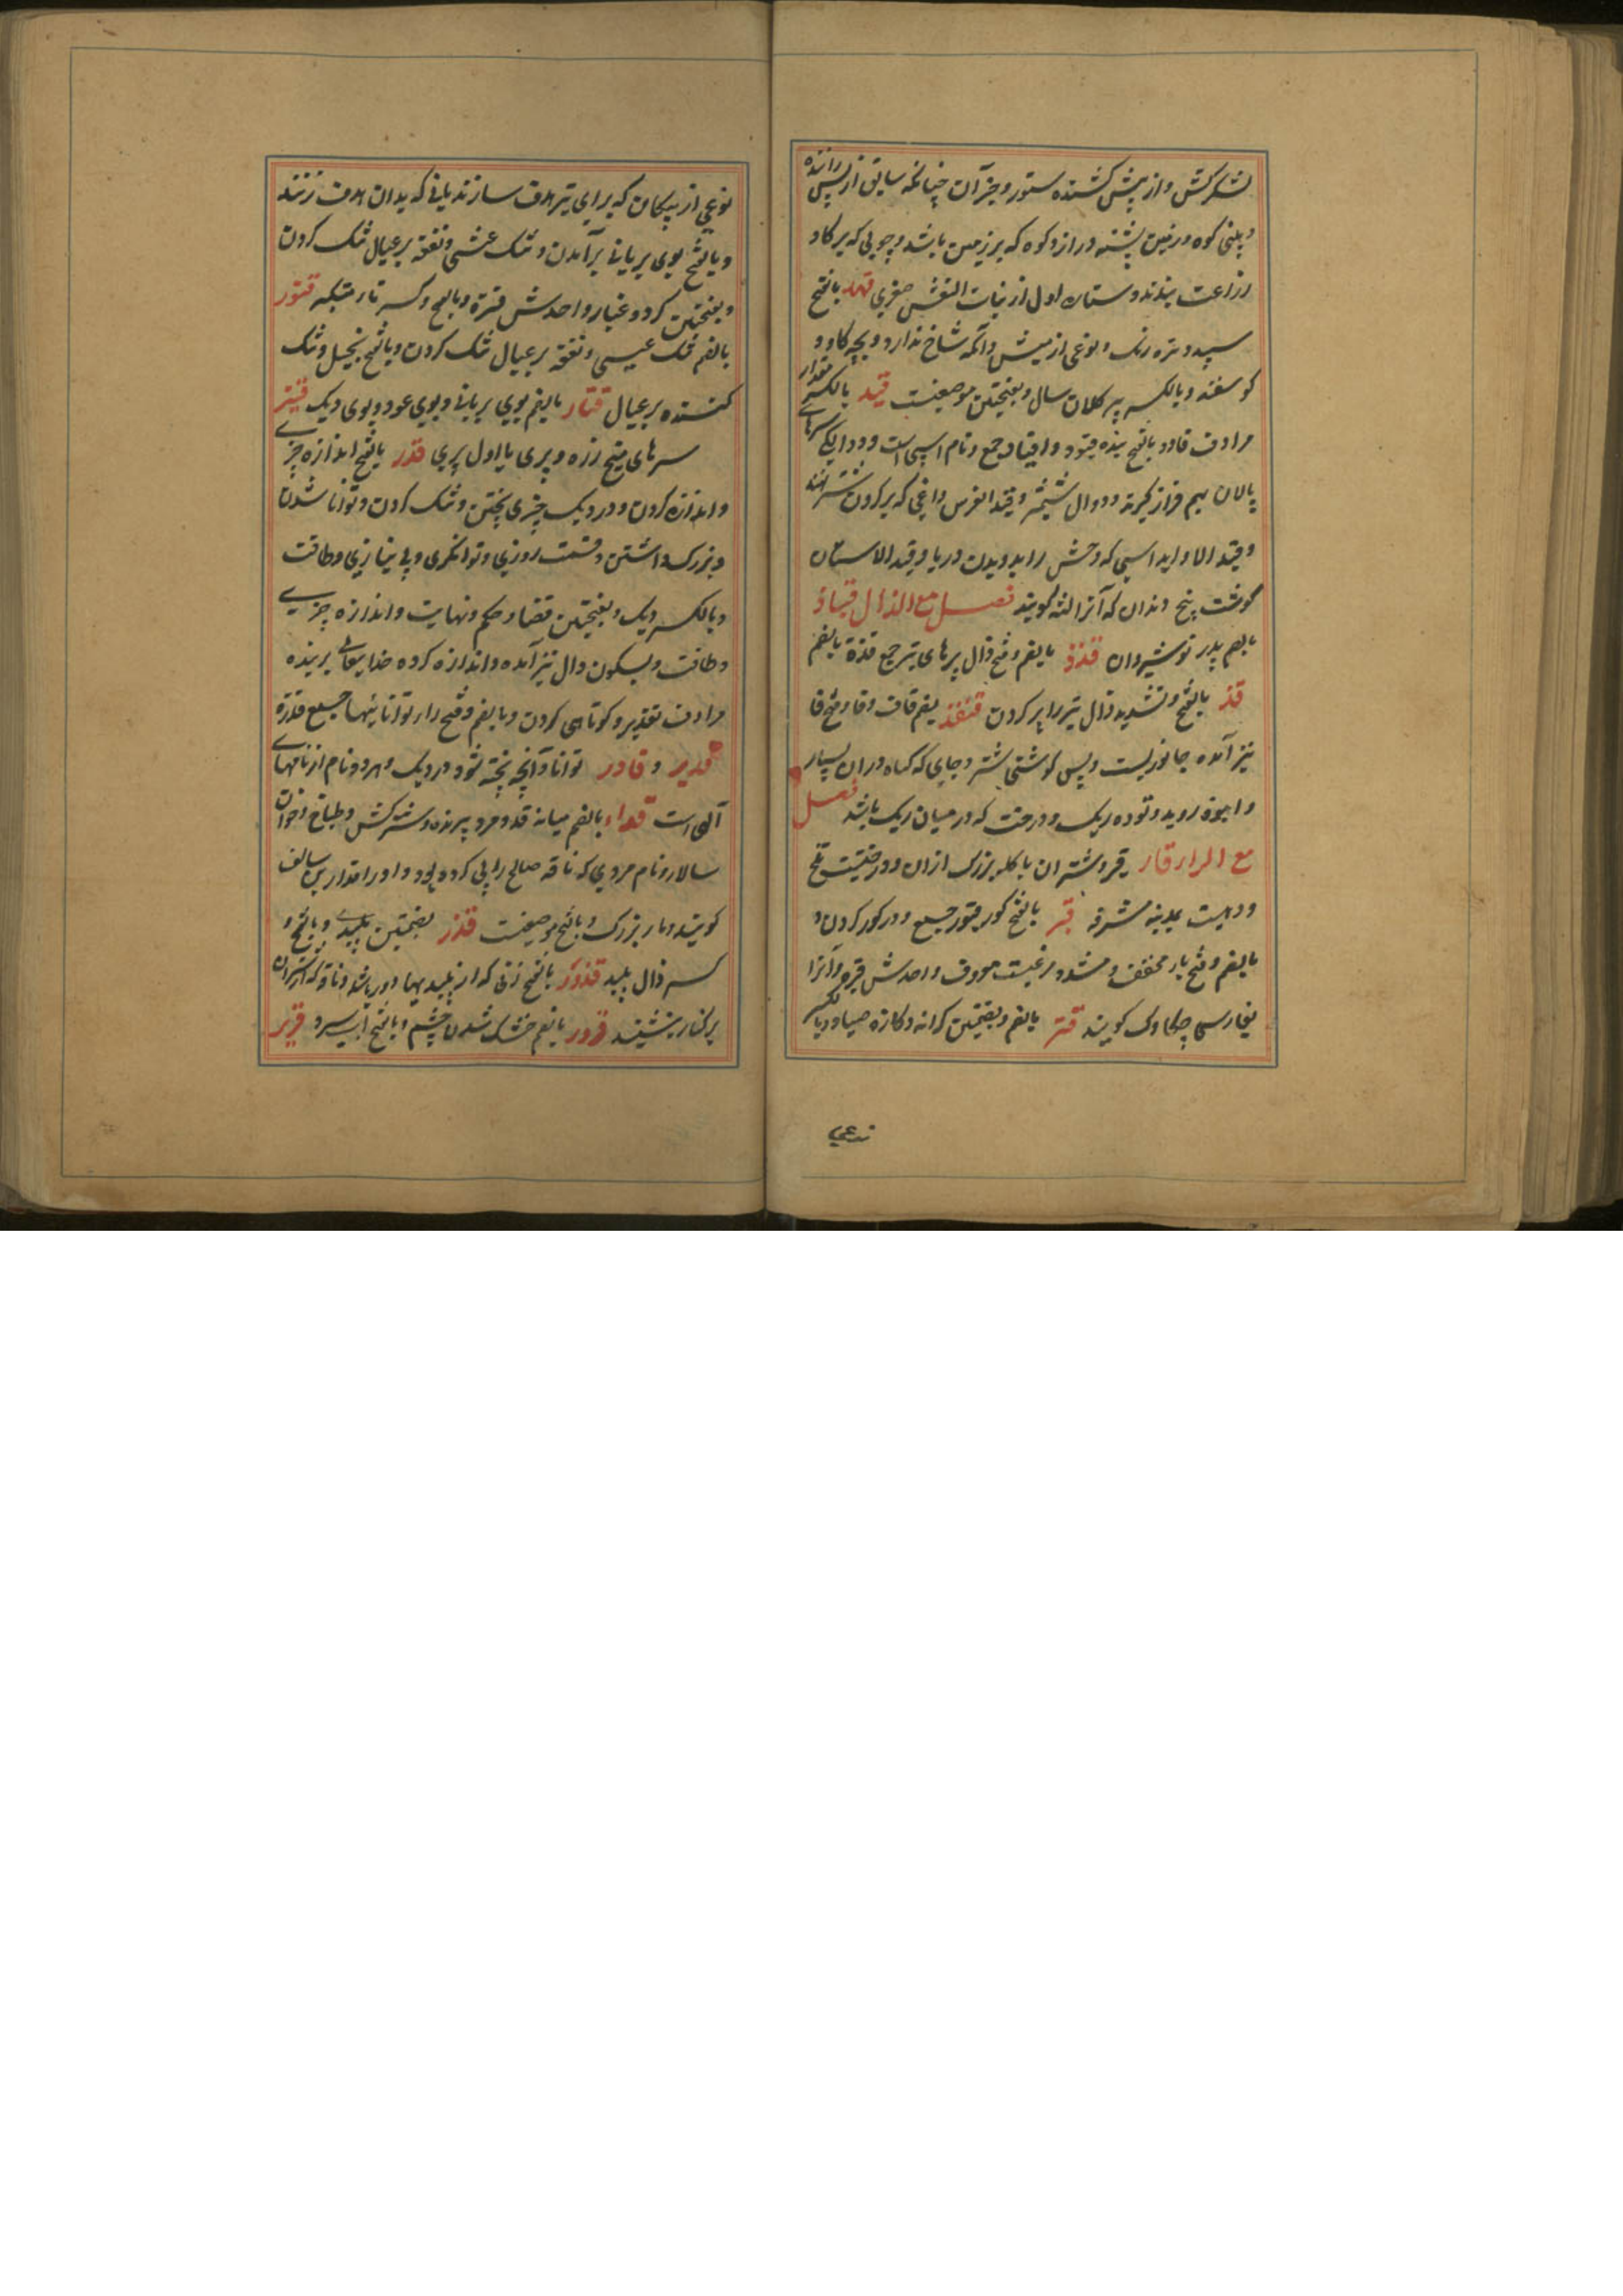 لشکرکش و از پیش کشنده ستور و جز آن چنانکه سایق از پس راننده
و بینی کوه و زمین پشته دراز و کوه که بر زمین باشد و چوبی که بر کاو
زراعت بندند و ستاره اول از بنات النعش صغری قهد بالفتح
سپید و تیره رنک و نوعی از میش و آنکه شاخ ندارد و بچه کاو و
کوسفند و بالکسر پیر کلان سال و بفتحتین موضعیست قید بالکسر مقدار
مرادف قاد و بالفتح بند قیود و اقیاد جمع و نام اسپی است و دوالیکه سرهای
پالان بهم فراز کیرند و دوال شمشیر و قید الفرس داغی که بر کردن شتر نهند
و قید الاوابد اسپی که وحش را بدویدن دریابد و قید الاسنان
کوشت بیخ دندان که آنرا لثه کویند فصل مع الذال قباذ
بالضم پدر نوشیروان قذذ بالضم و فتح ذال پرهای تیر جمع قذة بالضم
قذ بالفتح و تشدید ذال تیر را پر کردن قنفذ بضم قاف و فا و فتح فا
نیز آمده جانوریست و پس کوش شتر و جای که کیاه دران بسیار
و انبوه روید و توده ریک و درخت که در میان ریک باشد فصل
مع الرا قار قیر و شتران یا کله بزرک ازان و درختیست تلخ
و دهیست بمدینه مشرفه قبر بالفتح کور قبور جمع و در کور کردن و
بالضم و فتح با مخفف و مشدد مرغیست معروف واحدش قبره و آنرا
بفارسی چکاوک کویند قتر بالضم و بضمتین کرانه و کازه صیاد و بالکسر
نوعی
نوعی از پیکان که برای تیر هدف سازند یا نی که بدان هدف زنند
و بالفتح بوی بریانی برآمدن و تنک عیشی و نفقه بر عیال تنک کردن
و بفتحتین کرد و غبار واحدش قترة و بالفتح و کسر تا متکبر قتور
بالضم تنک عیشی و نفقه بر عیال تنک کردن و بالفتح بخیل و تنک
کننده بر عیال قتار بالضم بوی بریانی و بوی عود و بوی دیک قتیر
سرهای میخ زره و پیری یا اول پیری قدر بالفتح اندازه چیزی
و اندازه کردن و در دیک چیزی پختن و تنک کردن و توانا شدن
و بزرک داشتن و قسمت روزی و توانکری و بی نیازی و طاقت
و بالکسر دیک و بفتحتین قضا و حکم و نهایت و اندازه چیزی
و طاقت و بسکون دال نیز آمده و اندازه کرده خدایتعالی بر بنده
مرادف تقدیر و کوتاهی کردن و بالضم و فتح دال توانائیها جمع قدرة
قدیر و قادر توانا و آنچه پخته شود در دیک و هر دو نام از نامهای
الهی است قدار بالضم میانه قد و مرد پرنده و شترکش و طباخ و خوان
سالار و نام مردی که ناقه صالح را پی کرده بود و او را قدار بن سالف
کویند و مار بزرک و بالفتح موضعیست قذر بفتحتین پلیدی و بالفتح و
کسر ذال پلید قذور بالفتح زنی که از پلیدیها دور باشد و ناقه که از شتران
بر کنار نشیند قرور بالضم خنک شدن چشم و بالفتح آب سرد قریر